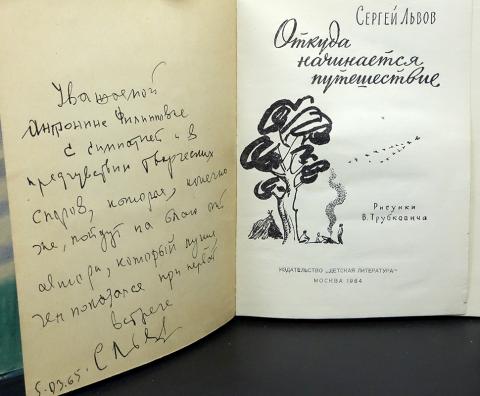 Уважаемой
Антонине Филипповне
с симпатией и в
предчувствии творческих
споров, которые, конечно
же, пойдут на благо
автора, который лучше
чем показался при первой
встрече
С Львов
5.03.65.
Сергей Львов
Откуда
начинается
путешествие
Рисунки
В. Трубковича
ИЗДАТЕЛЬСТВО „ДЕТСКАЯ ЛИТЕРАТУРА"
МОСКВА 1964